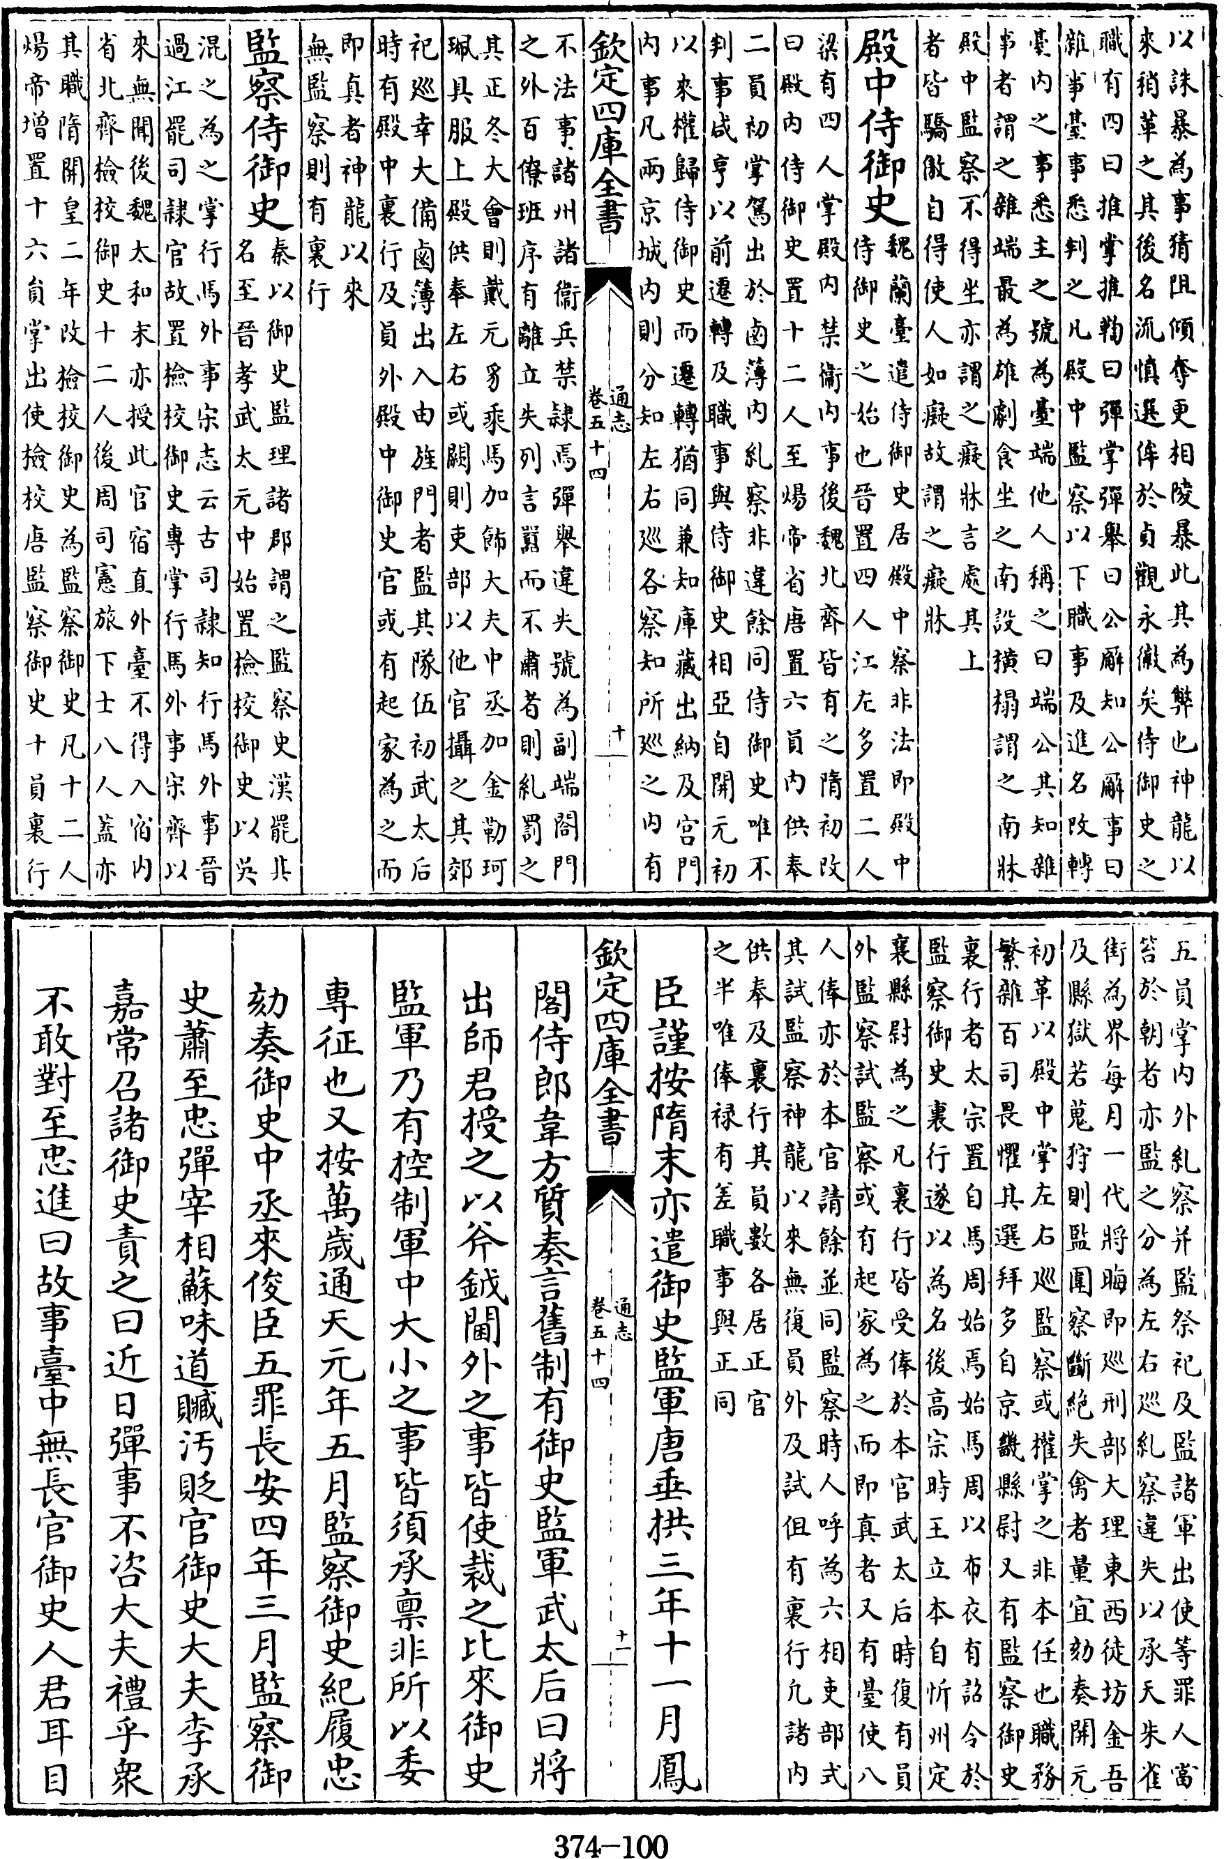 以誅暴為事猜阻傾奪更相陵暴此其為弊也神龍以
來稍革之其後名流慎選侔於貞觀永徽矣侍御史之
職有四曰推掌推鞫曰彈掌彈舉曰公廨知公廨事曰
雜事臺事悉判之凡殿中監察以下職事及進名改轉
臺內之事悉主之號為臺端他人稱之曰端公其知雜
事者謂之雜端最為雄劇食坐之南設橫榻謂之南牀
殿中監察不得坐亦謂之癡牀言處其上
者皆驕傲自得使人如癡故謂之癡牀
殿中侍御史
魏蘭臺遣侍御史居殿中察非法即殿中
侍御史之始也晉置四人江左多置二人
梁有四人掌殿內禁衞內事後魏北齊皆有之隋初改
曰殿內侍御史置十二人至煬帝省唐置六員內供奉
二員初掌駕出於鹵薄內糺察非違餘同侍御史唯不
判事咸亨以前遷轉及職事與侍御史相亞自開元初
以來權歸侍御史而遷轉猶同兼知庫藏出納及宮門
內事凡兩京城內則分知左右巡各察知所巡之內有
欽定四庫全書
通志
卷五十四
十
不法事諸州諸衞兵禁隷焉彈舉違失號為副端閤門
之外百僚班序有離立失列言囂而不肅者則糺罰之
其正冬大會則戴元豸乘馬加飾大夫中丞加金勒珂
珮具服上殿供奉左右或闕則吏部以他官攝之其郊
祀巡幸大備鹵薄出入由旌門者監其隊伍初武太后
時有殿中裏行及員外殿中御史官或有起家為之而
即真者神龍以來
無監察則有裏行
監察侍御史
秦以御史監理諸郡謂之監察史漢罷其
名至晉孝武太元中始置檢校御史以吳
混之為之掌行馬外事宋志云古司隷知行馬外事晉
過江罷司隷官故置檢校御史專掌行馬外事宋齊以
來無聞後魏太和末亦授此官宿直外臺不得入宿內
省北齊檢校御史十二人後周司憲旅下士八人蓋亦
其職隋開皇二年改檢校御史為監察御史凡十二人
煬帝增置十六員掌出使檢校唐監察御史十員裏行
五員掌內外糺察并監祭祀及監諸軍出使等罪人當
笞於朝者亦監之分為左右巡糺察違失以承天朱雀
街為界每月一代將晦即巡刑部大理東西徒坊金吾
及縣獄若蒐狩則監圍察斷絶失禽者量宜劾奏開元
初革以殿中掌左右巡監察或權掌之非本任也職務
繁雜百司畏懼其選拜多自京畿縣尉又有監察御史
裏行者太宗置自馬周始焉始馬周以布衣有詔令於
監察御史裏行遂以為名後高宗時王立本自忻州定
襄縣尉為之凡裏行皆受俸於本官武太后時復有員
外監察試監察或有起家為之而即真者又有臺使八
人俸亦於本官請餘並同監察時人呼為六相吏部式
其試監察神龍以來無復員外及試但有裏行凡諸內
供奉及裏行其員數各居正官
之半唯俸禄有差職事與正同
臣謹按隋末亦遣御史監軍唐垂拱三年十一月鳳
欽定四庫全書
通志
卷五十四
十一
閣侍郎韋方質奏言舊制有御史監軍武太后曰將
出師君授之以斧鉞閫外之事皆使裁之比來御史
監軍乃有控制軍中大小之事皆須承禀非所以委
專征也又按萬歲通天元年五月監察御史紀履忠
劾奏御史中丞來俊臣五罪長安四年三月監察御
史蕭至忠彈宰相蘇味道贓汚貶官御史大夫李承
嘉常召諸御史責之曰近日彈事不咨大夫禮乎衆
不敢對至忠進曰故事臺中無長官御史人君耳目
374-100